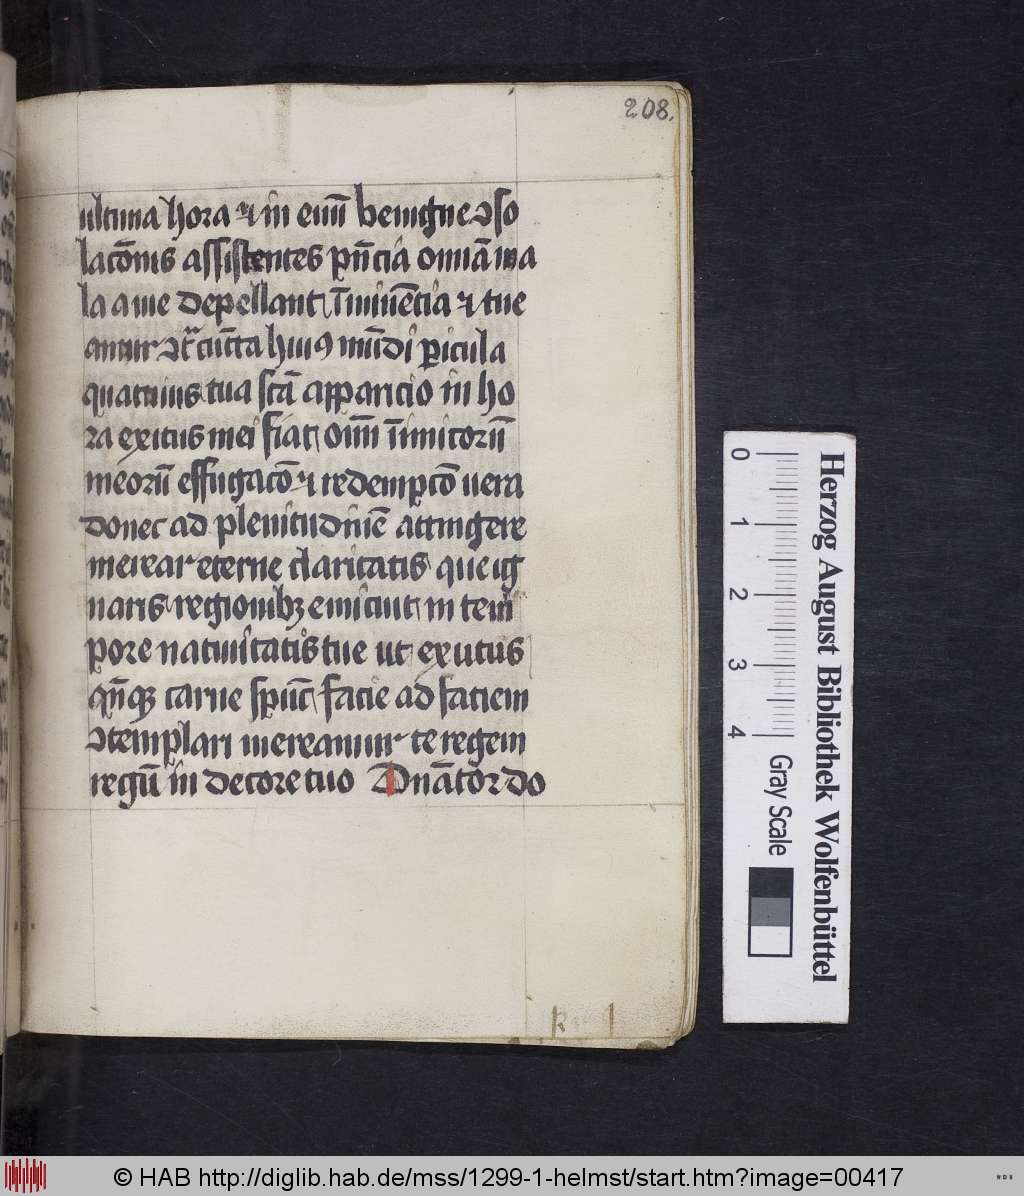 208.
ultima hora ⁊ in eūū benigne ꝯso
lacōnis assistentes pn̄cia omīa ma
la a me depellant īminēcia ⁊ tue
antur ꝯt̄ cūcta huiꝰ mūdi ꝑicula
quatinus tua sc̄a apparicio in ho
ra exitus mei fiat om̄ inīmicorū
meorū effugacō ⁊ redempcō uera
donec ad plenitudinē attingere
merear eterne claritatis que ig
naris regionibꝫ emicuit in tem
pore natiuitatis tue ut exutus
qn̄qꝫ carne sp̄uc facie ad faciem
ꝯtemplari mereamur te regem
regū in decore tuo Dn̄ator do
Herzog August Bibliothek Wolfenbüttel
0 1 2 3 4 Gray Scale
© HAB http://diglib.hab.de/mss/1299-1-helmst/start.htm?image=00417